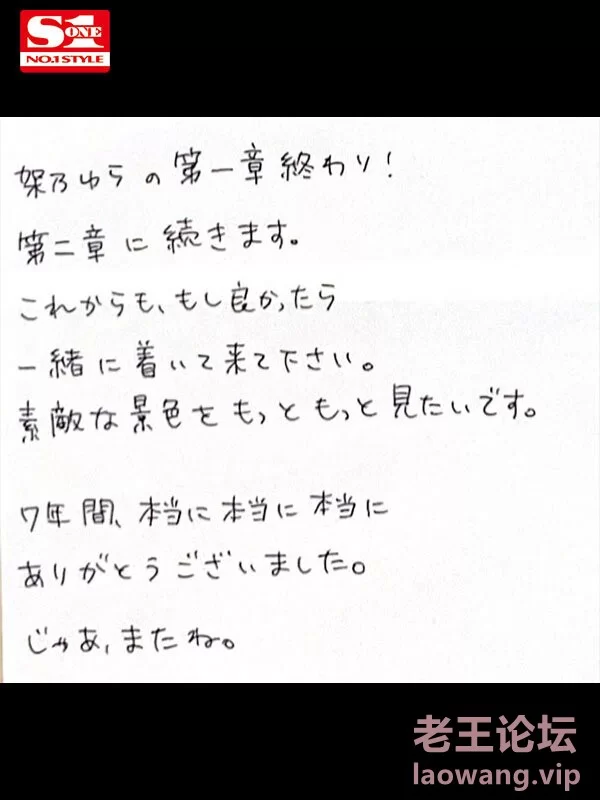 S1
ONE
NO.1 STYLE
架乃ゆらの第一章終わり!
第二章に続きます。
これからも、もし良かったら
一緒に着いて来て下さい。
素敵な景色をもっともっと見たいです。
7年間、本当に本当に本当に
ありがとうございました。
じゃあ、またね。
老王论坛
laowang.vip